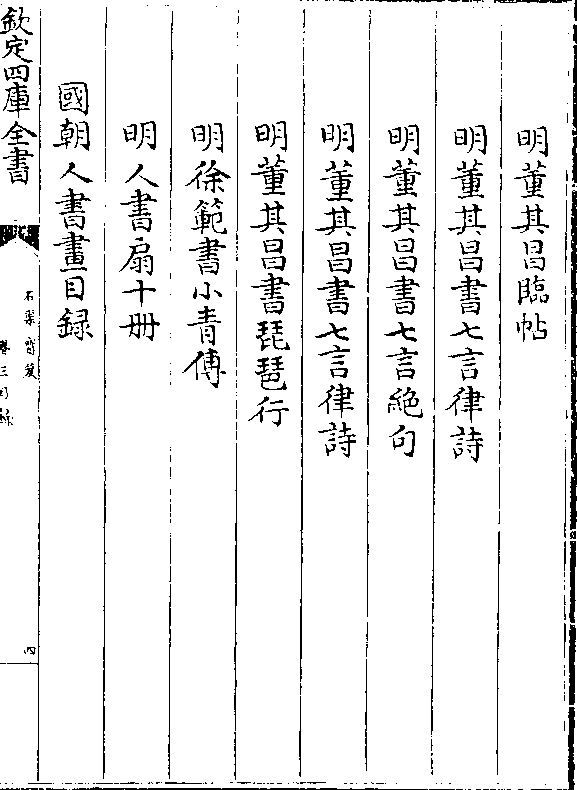 明董其昌臨帖
明董其昌書七言律詩
明董其昌書七言絶句
明董其昌書七言律詩
明董其昌書琵琶行
明徐範書小青傳
明人書扇十册
國朝人書畫目録
欽定四庫全書
石渠寳笈
卷三目録
四